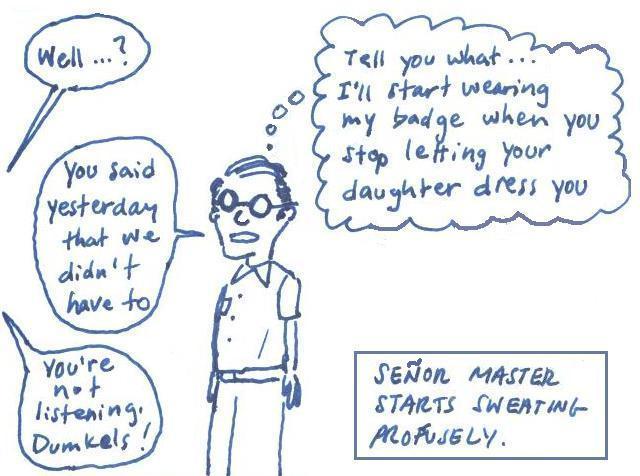 Well...?
You said
yesterday
that we
didn't
have to
You're
not
listening,
Dumkels!
Tell you what...
I'll start wearing
my badge when you
stop letting your
daughter dress you
SEÑOR MASTER
STARTS SWEATING
PROFUSELY.